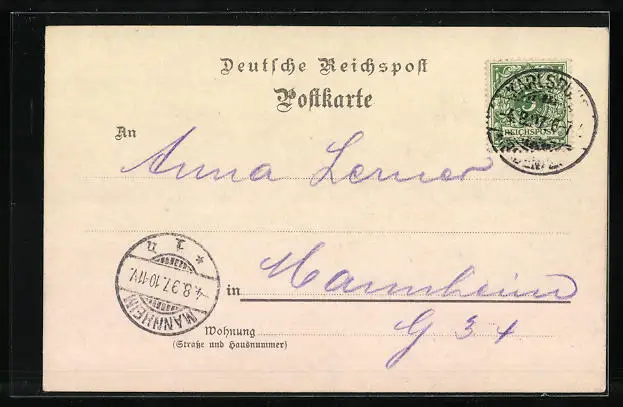 Deutsche Reichspost
Postkarte
REICHSPOST
4.8.97.6-7
An
Anna Lerner
MANNHEIM
4.8.97.10-11V.
in Mannheim
Wohnung
G 3 4
(Straße und Hausnummer)